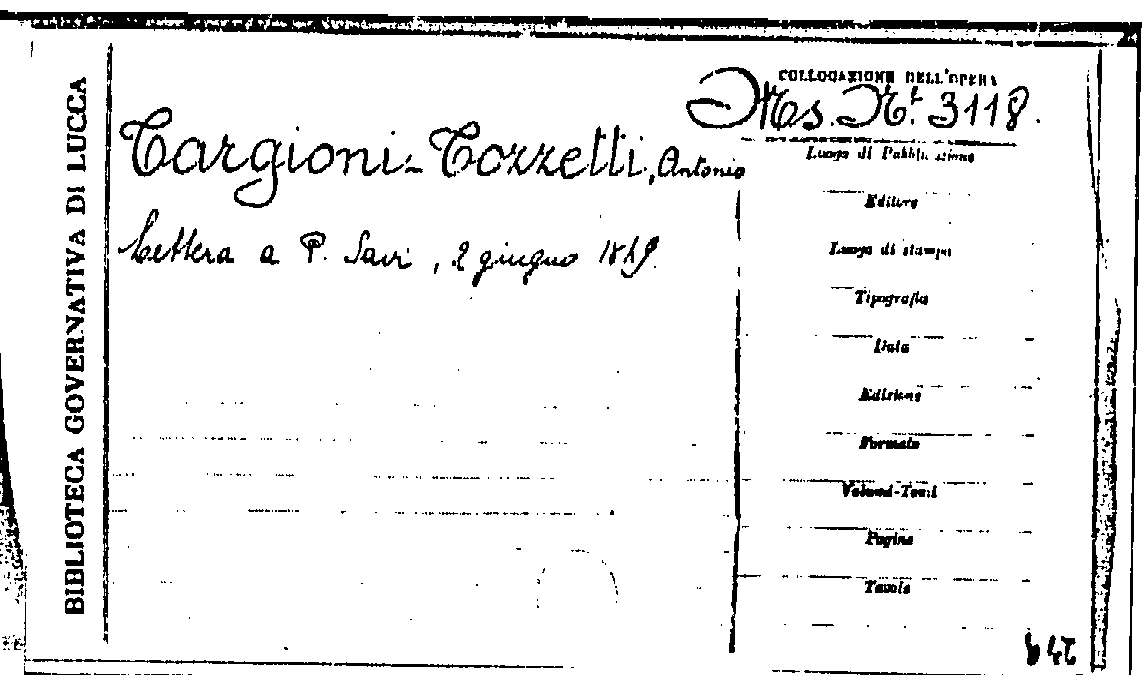 BIBLIOTECA GOVERNATIVA DI LUCCA
Targioni-Tozzetti, Antonio
Lettera a P. Savi, 2 giugno
COLLOCAZIONE DELL'OPERA
Ms. N. 3118.
Luogo di Pubblicazione
Editore
Luogo di stampa
Tipografia
Data
Edizione
Formato
Volumi-Tomi
Pagine
Tavole